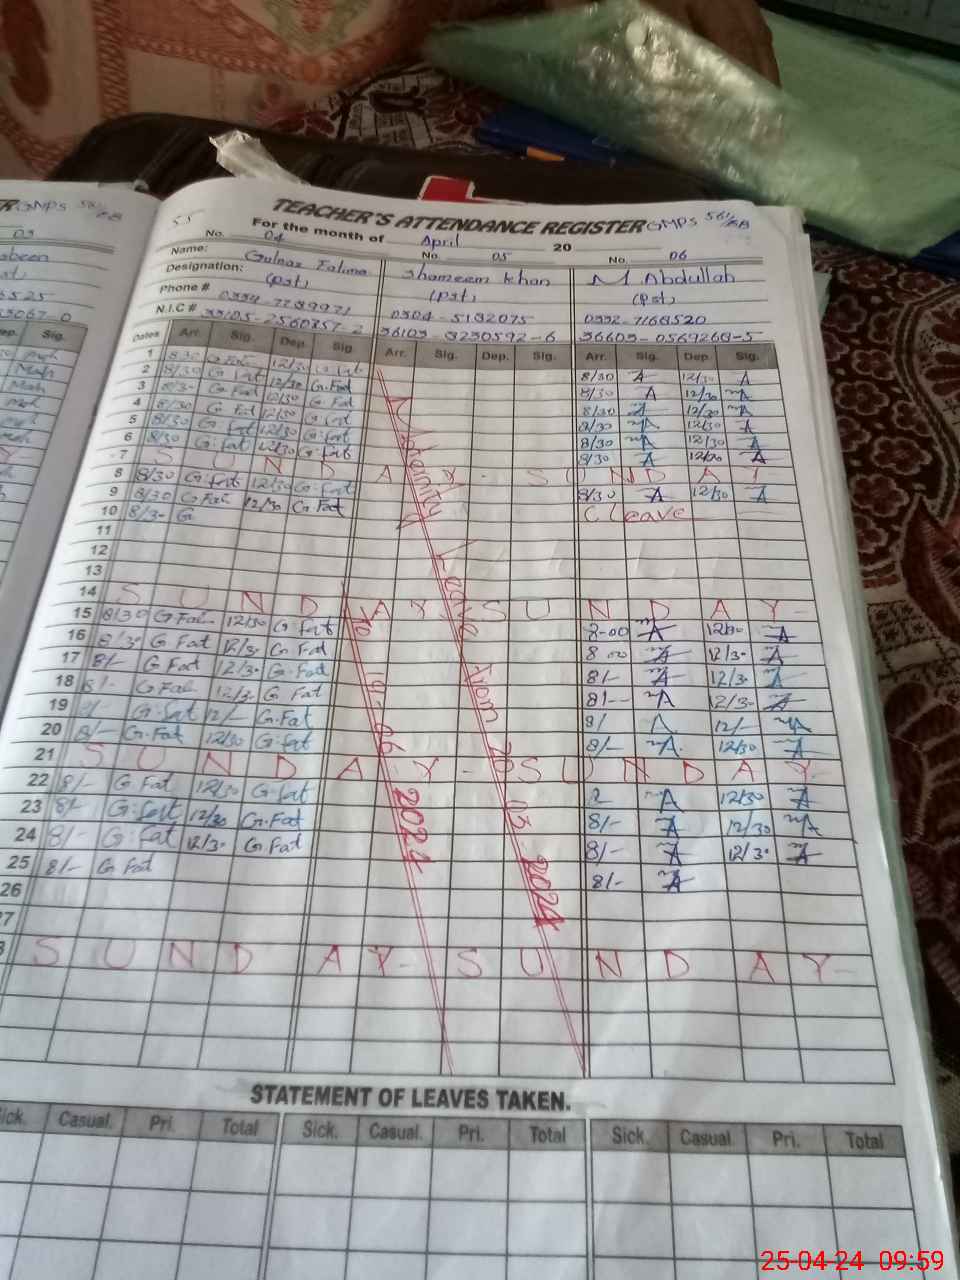 R. GMPS 561/EB
55 TEACHER'S ATTENDANCE REGISTER GMPS 561/EB
For the month of April 20
No. 04 No. 05 No. 06
Name: Gulnaz Fatima Shameem Khan M Abdullah
Designation: (pst) (pst) (pst)
Phone # 0304-5132075 0332-7168520
N.I.C # 36103-3230592-6 36603-0569268-5
Dates Arr. Sig. Dep. Sig. Arr. Sig. Dep. Sig. Arr. Sig. Dep. Sig.
1 8/30 G Fat 12/30 G Fat 8/30 12/30
2 8/30 G Fat 12/30 G.Fat 8/30 12/30
3 8/3- G Fat 12/30 G Fat 8/30 12/30
4 8/30 G Fat 12/30 G Fat 8/30 12/30
5 8/30 G Fat 12/30 G.Fat 8/30 12/30
6 8/30 G.fat 12/30 G.fat 8/30 12/30
7 S U N D A Y - S U N D A Y
8 8/30 G.Fat 12/30 G.Fat 8/30 12/30
9 8/30 G Fat 12/30 G Fat C Leave
10 8/3- G
11
12
13
14 S U N D A Y S U N D A Y-
15 8/30 G Fat 12/30 G Fat 8-00 12/30
16 8/30 G Fat 12/3- G Fat 8 00 12/3-
17 8/- G Fat 12/3- G.Fat 8/- 12/3-
18 8/- G Fat 12/3- G Fat 8/-- 12/3-
19 8/- G.Fat 12/- G.Fat 8/ 12/-
20 8/- G.Fat 12/30 G.fat 8/- 12/30
21 S U N D A Y - S U N D A Y-
22 8/- G Fat 12/30 G.fat 12/30
23 8/- G.Fat 12/30 G.Fat 8/- 12/30
24 8/- G.Fat 12/3- G Fat 8/- 12/3-
25 8/- G Fat 8/-
26
27
S U N D A Y- S U N D A Y-
Maternity Leave from 20-03-2024
To 19-06-2024
STATEMENT OF LEAVES TAKEN.
Sick. Casual. Pri. Total Sick. Casual. Pri. Total Sick. Casual Pri. Total
25-04-24 09:59